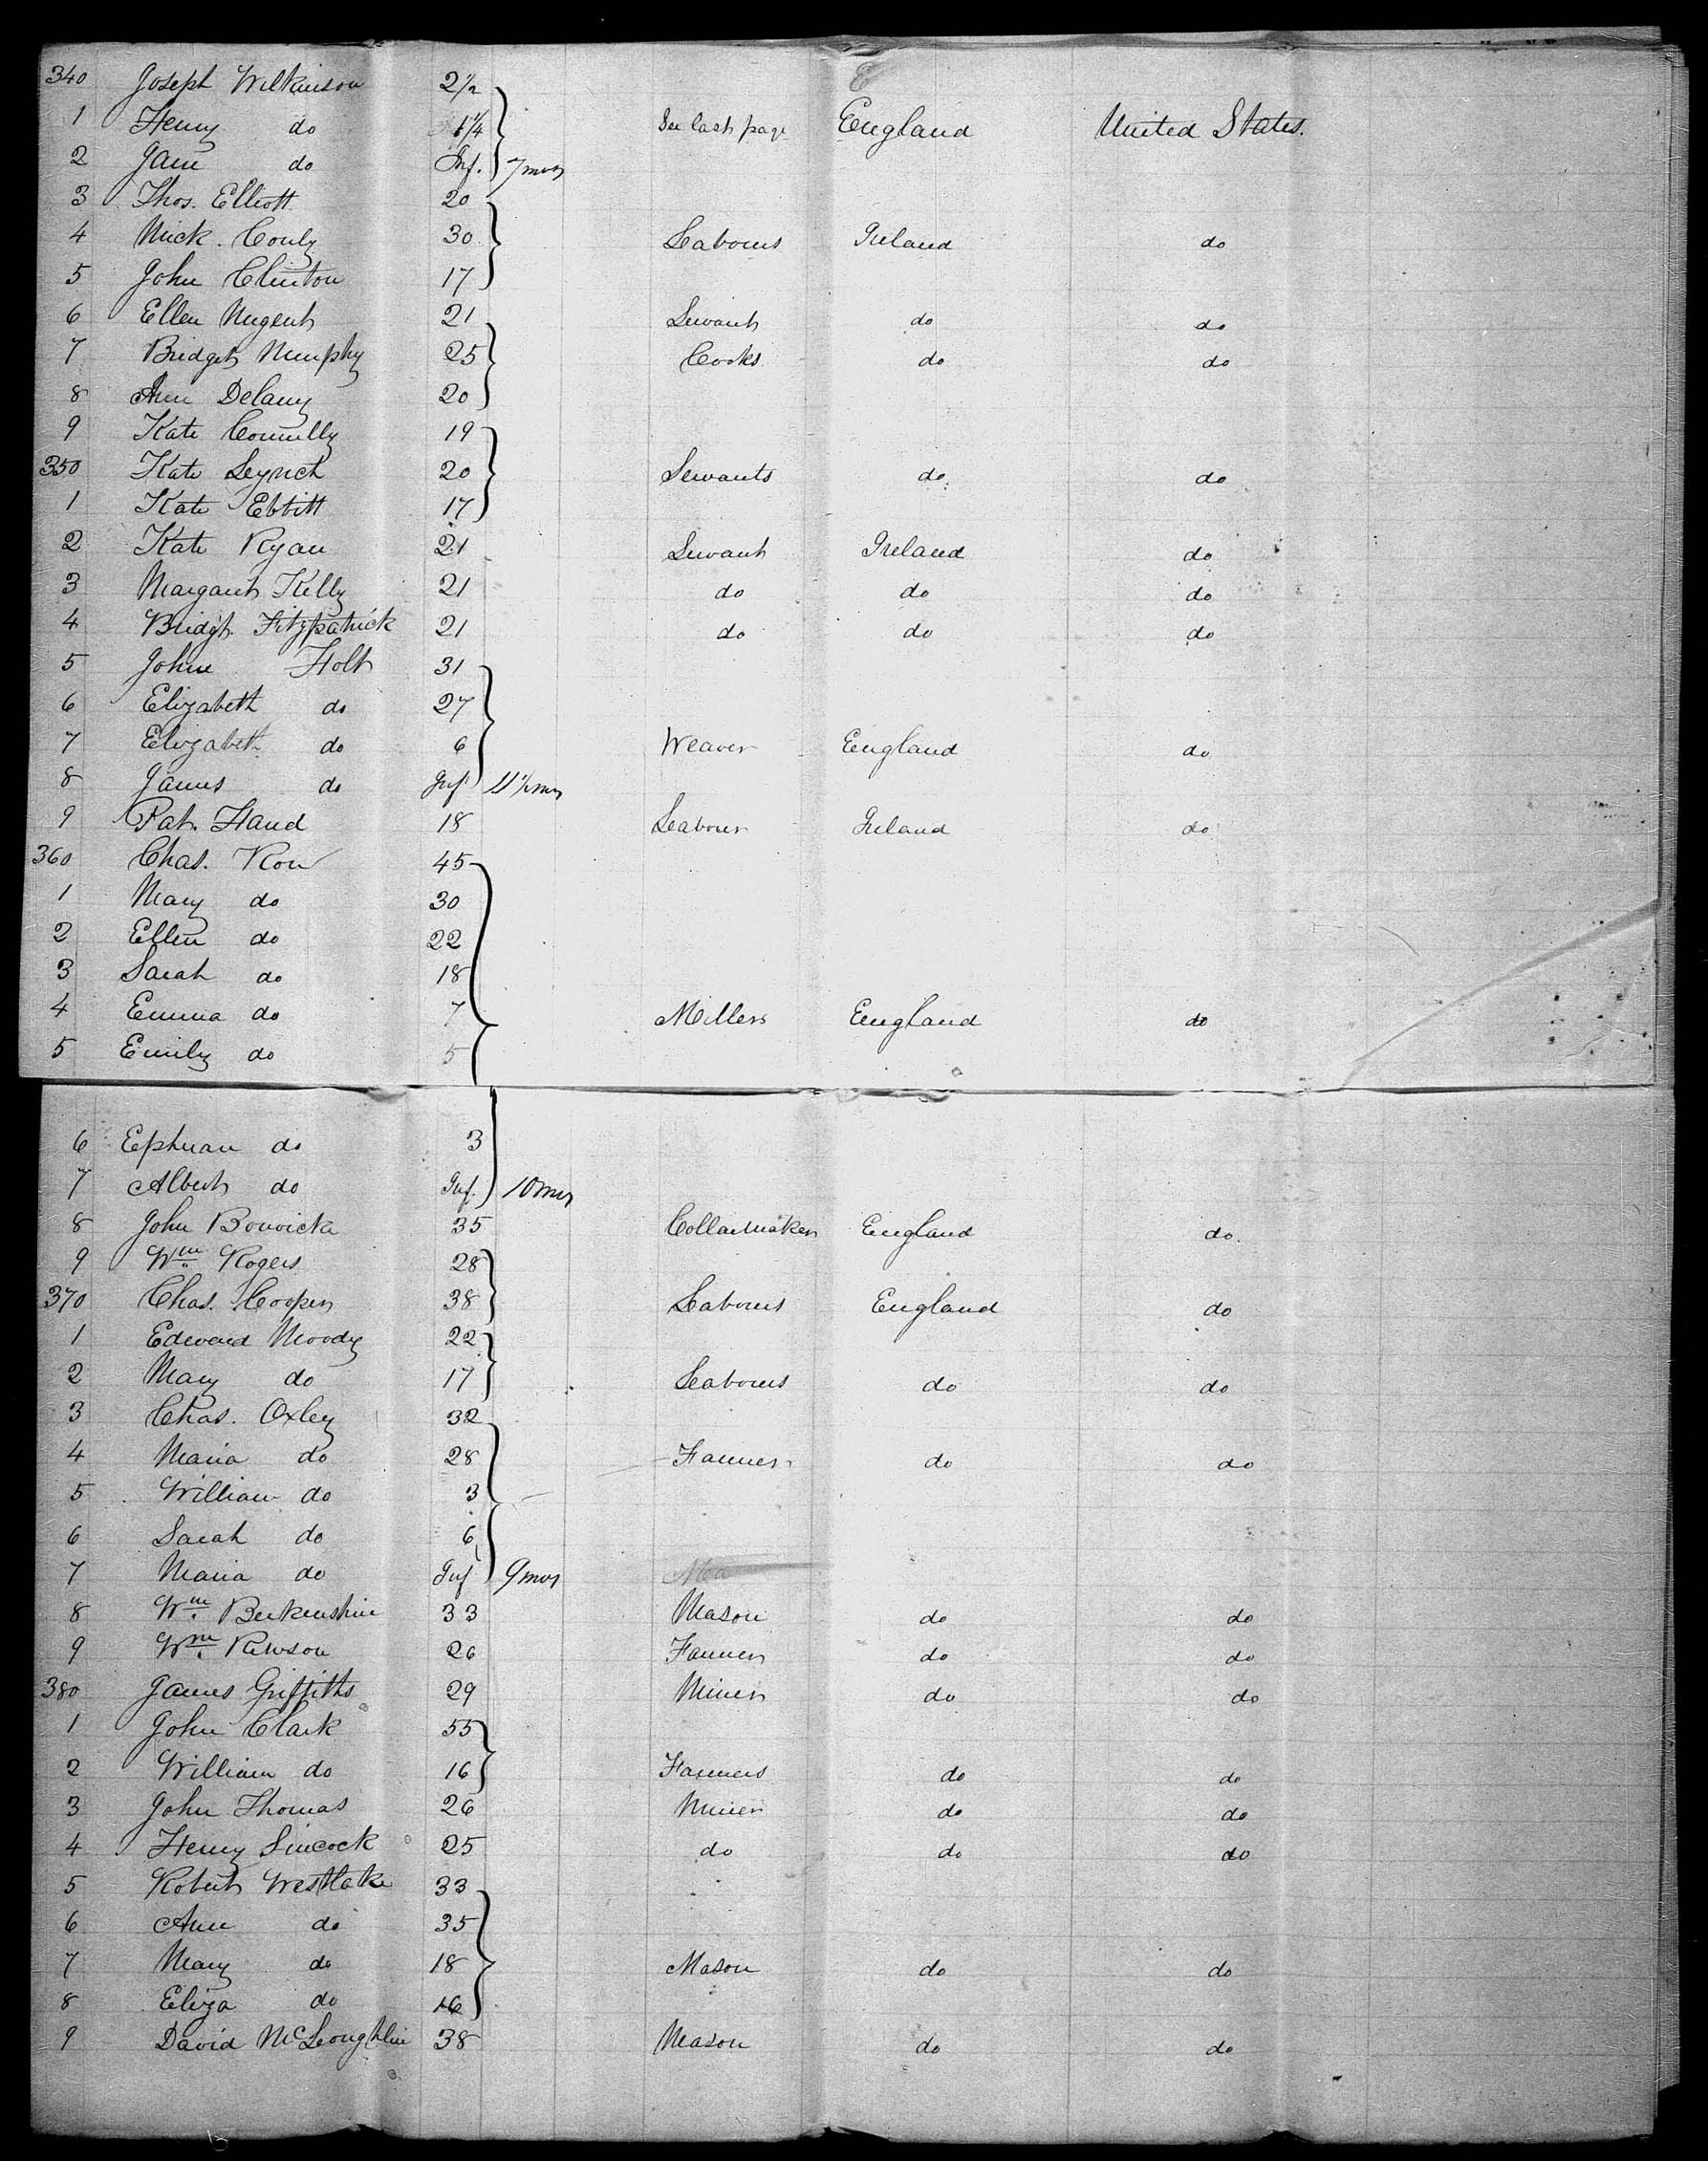 340 Joseph Wilkinson 2½
1 Henry do 1¼ See last page England United States.
2 Jane do Inf. 7 mos
3 Thos. Elliott 20
4 Mick. Conly 30 Labours Ireland do
5 John Clinton 17
6 Ellen Nugent 21 Servant do do
7 Bridget Murphy 25 Cooks do do
8 Ann Delany 20
9 Kate Connelly 19
350 Kate Leynch 20 Servants do do
1 Kate Ebbitt 17
2 Kate Ryan 21 Servant Ireland do
3 Margaret Kelly 21 do do do
4 Bridgt. Fitzpatrick 21 do do do
5 John Holt 31
6 Elizabeth do 27
7 Elizabeth do 6 Weaver England do
8 James do Inf 11½ mos
9 Pat. Hand 18 Labour Ireland do
360 Chas. Row 45
1 Mary do 30
2 Ellen do 22
3 Sarah do 18
4 Emma do 7 Miller England do
5 Emily do 5
6 Ephraim do 3
7 Albert do Inf. 10 mos
8 John Bonwick 35 Collarmaker England do.
9 Wm. Rogers 28
370 Chas. Cooper 38 Labours England do
1 Edward Moody 22
2 Mary do 17 Labours do do
3 Chas. Oxley 32
4 Maria do 28 Farmer do do
5 William do 3
6 Sarah do 6
7 Maria do Inf 9 mos
8 Wm. Berkenshire 33 Mason do do
9 Wm. Rewson 26 Farmer do do
380 James Griffiths 29 Miner do do
1 John Clark 55
2 William do 16 Farmers do do
3 John Thomas 26 Miner do do
4 Henry Sincock 25 do do do
5 Robert Westlake 33
6 Ann do 35
7 Mary do 18 Mason do do
8 Eliza do 16
9 David McLeoughlin 38 Mason do do